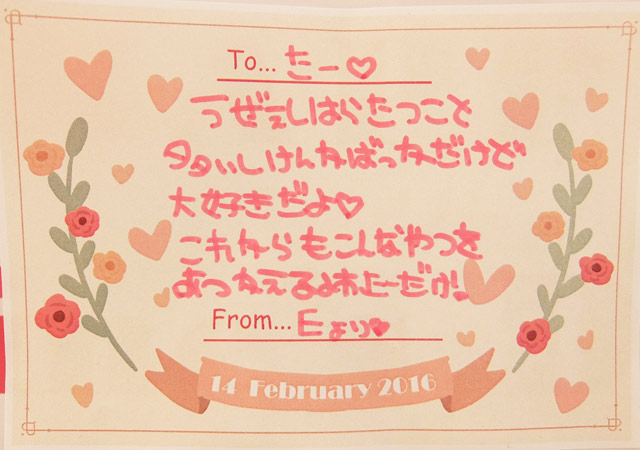 To... たー♡
うぜぇしはらたつこと
多ぃしけんかばっかだけど
大好きだよ♡
これからもこんなやつを
あつかえるのはたーだけ
From... Eより♥
14 February 2016